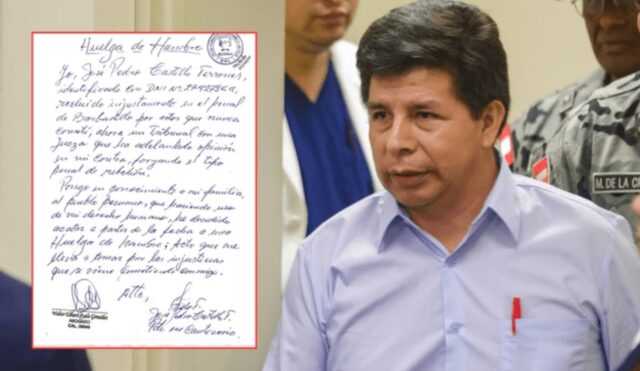 Huelga de Hambre
Yo, José Pedro Castillo Terrones,
identificado con DNI N°
recluido injustamente en el penal
de Barbadillo por actos que nunca
cometí, ahora un Tribunal con una
Jueza que ha adelantado opinión
en mi contra, forzando el tipo
penal de rebelión.
Pongo en conocimiento a mi familia,
al pueblo peruano, que haciendo uso
de mi derecho humano, he decidido
acatar a partir de la fecha a una
Huelga de Hambre; Acto que me
llevó a tomar por las injusticias
que se viene cometiendo conmigo.
Atte,
José Pedro Castillo T.
ABOGADO
M. DE LA C